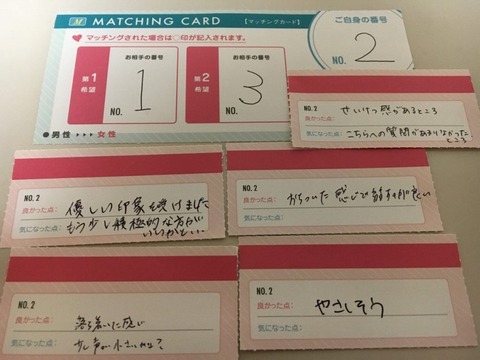 M MATCHING CARD 【マッチングカード】
ご自身の番号
NO. 2
♥マッチングされた場合は○印が記入されます。
第1希望
お相手の番号
NO. 1
第2希望
お相手の番号
NO. 3
●男性 ▸▸▸ 女性
NO.2
良かった点: せいけつ感があるところ
気になった点: こちらへの質問があまりなかった
ところ
NO.2
良かった点: 優しい印象を受けました
気になった点: もう少し積極的な方が
NO.2
良かった点: おちついた感じで 良い
気になった点:
NO.2
良かった点: 落ち着いた感じ
気になった点: 少し声が小さいかな?
NO.2
良かった点: やさしそう
気になった点: